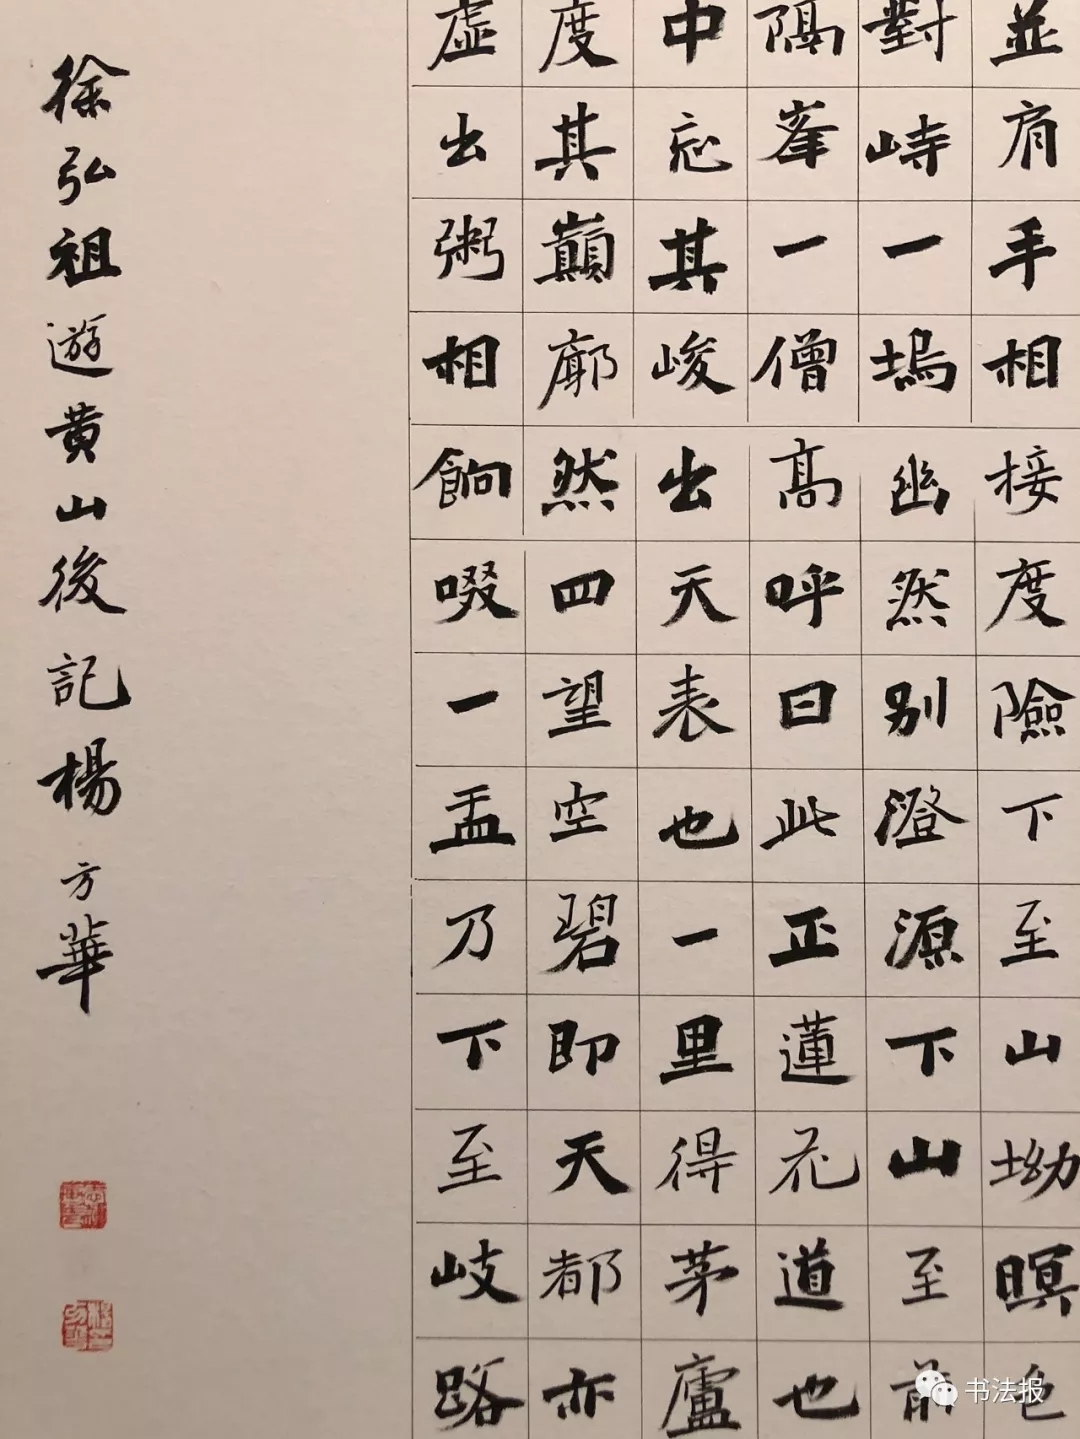 並肩手相接度險下至山坳暝色
對峙一塢幽然別澄源下山至前
隔峯一僧高呼曰此正蓮花道也
中忘其峻出天表也一里得茅廬
度其巔廓然四望空碧即天都亦
虛出粥相餉啜一盂乃下至岐路
徐弘祖遊黄山後記楊方華
书法报